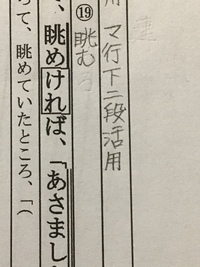 用 マ行下二段活用
⑲眺むる
、眺めければ、「あさまし
って、眺めていたところ、「(